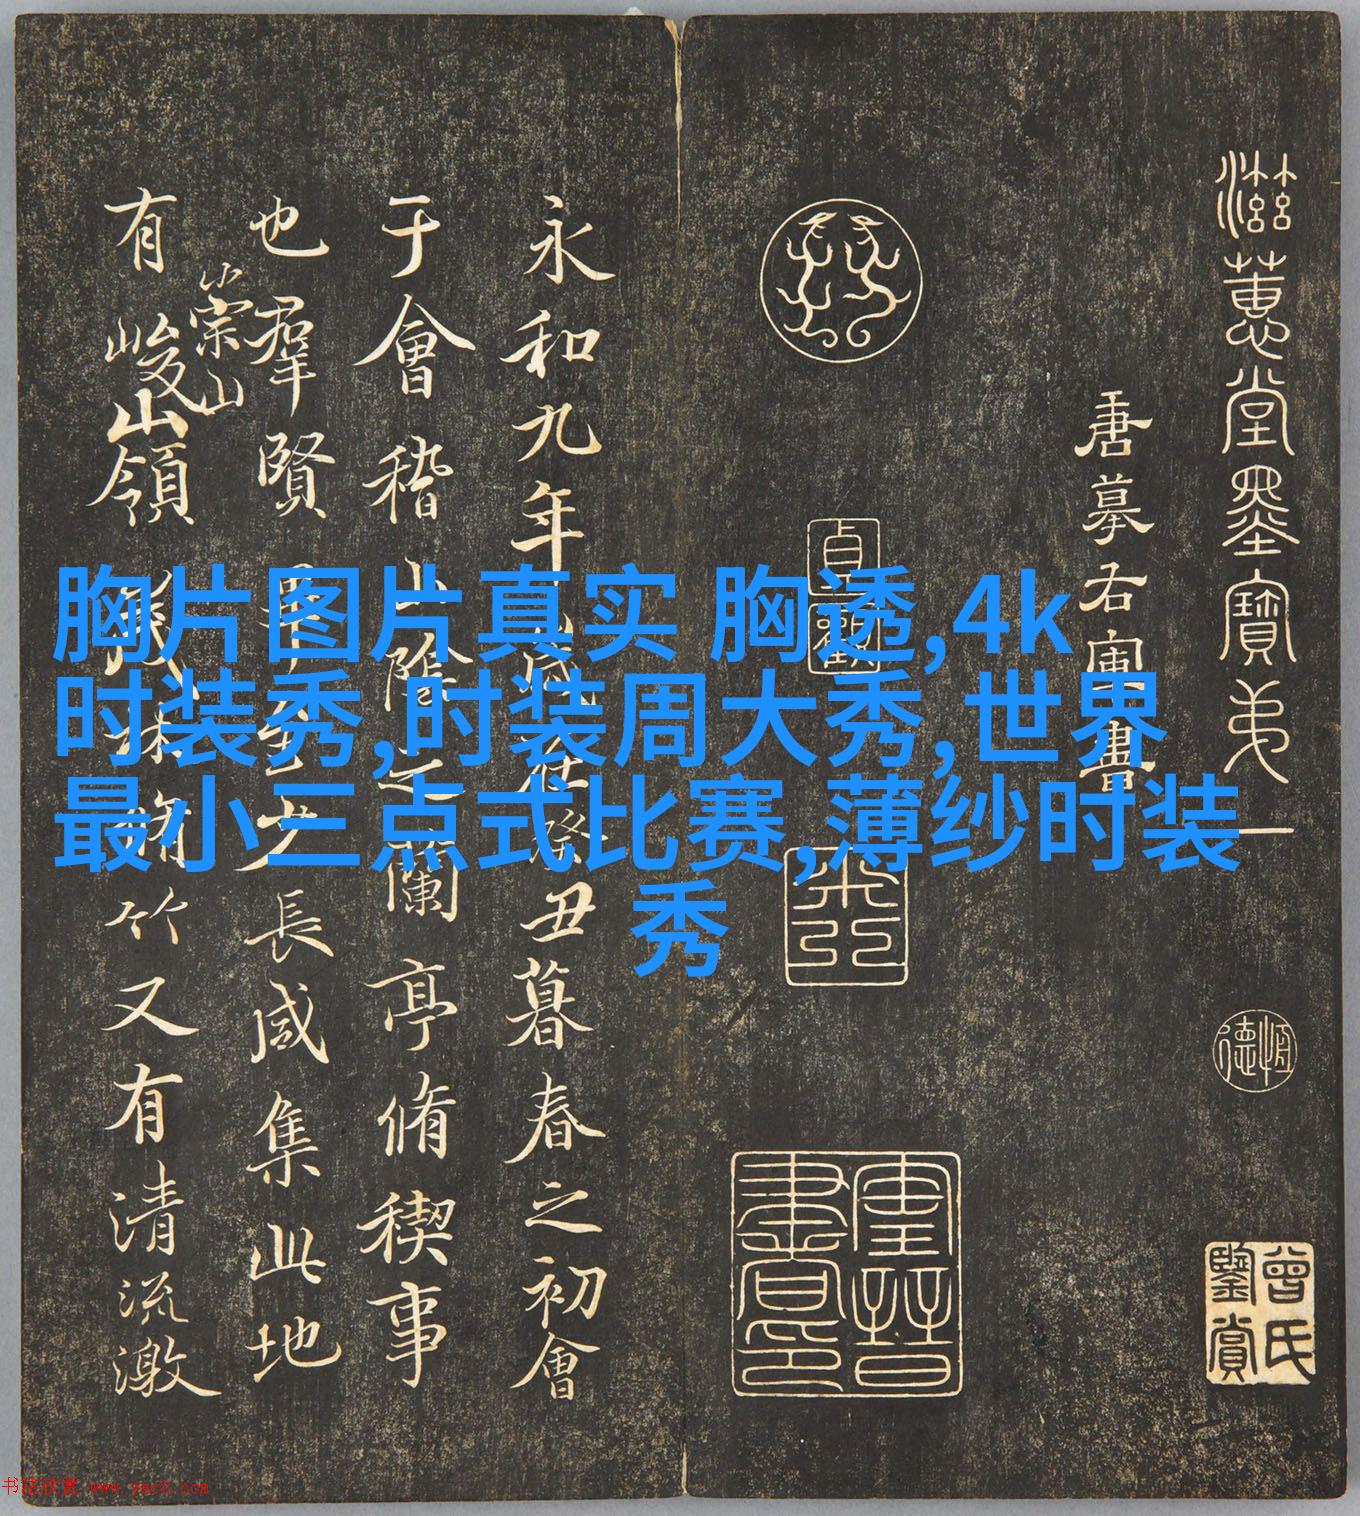 滋蕙堂墨寶弟一
唐摹右軍書
恒德
曾氏鑒賞
貞觀
永和九年歲在癸丑暮春之初會
于會稽山陰之蘭亭脩稧事
也羣賢畢至少長咸集此地
有崇山
峻山領茂林脩竹又有清流激
胸片图片真实 胸透,4k
时装秀,时装周大秀,世界
最小三点式比赛,薄纱时装
秀
书法欣赏 www.yac8.com